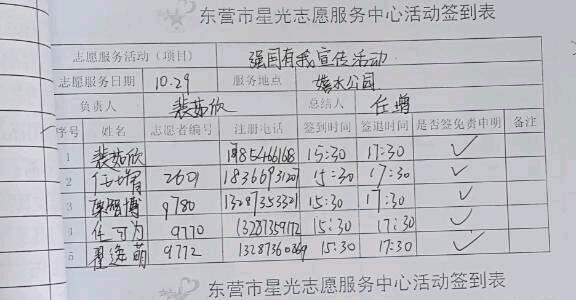 东营市星光志愿服务中心活动签到表
志愿服务活动（项目） 强国有我宣传活动
志愿服务日期 10.29 服务地点 公园
负责人 裴茹欣 总结人 任增
序号 姓名 志愿者编号 注册电话 签到时间 签退时间 是否签免责申明 备注
1 裴茹欣 15:30 17:30 ✓
2 2601 15:30 17:30 ✓
3 智博 9780 13287353321 15:30 17:30 ✓
4 任可为 9770 13287359172 15:30 17:30 ✓
5 翟逸萌 9772 13287360869 15:30 17:30 ✓
东营市星光志愿服务中心活动签到表